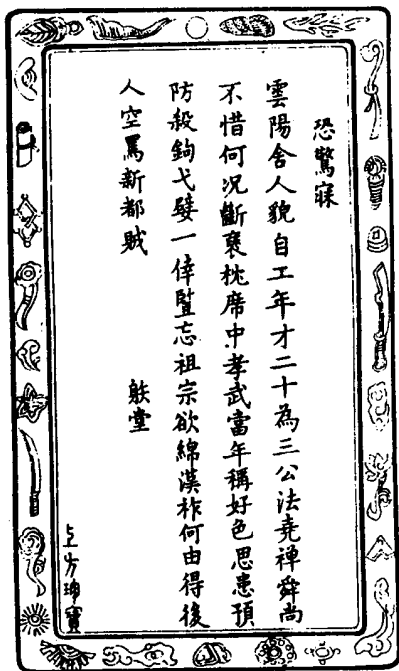 恐驚寐
雲陽舍人貌自工年才二十為三公法堯禪舜尚
不惜何況斷褎枕席中孝武當年稱好色思患預
防殺鉤弋嬖一倖豎忘祖宗欲綿漢祚何由得後
人空罵新都賊
躲堂
上方珅寶